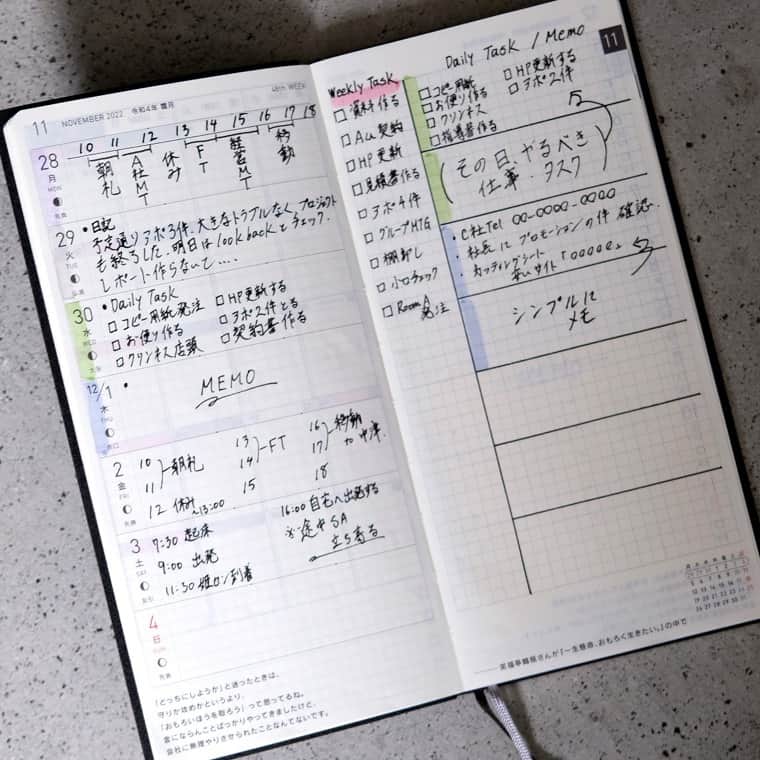 11 NOVEMBER 2022 令和4年 霜月
48th WEEK
28 月 MON
10 11 12 13 14 15 16 17 18
朝礼
A社MT
休み
FT
経営MT
移動
29 火 TUE
・日記
予定通りアポ3件、大きなトラブルなく、プロジェクト
も終了した。明日はlook backとチェック.
レポート作らないと....
30 水 WED
・Daily Task
□コピー用紙発注 □HP更新する
□お便り作る □アポ2件とる
□クリンネス店頭 □契約書作る
12/1 木 THU
・
MEMO
2 金 FRI
10 11 朝礼
12 休み ~13:00
13 14 FT
15
16 17 移動 to 中津.
18
3 土 SAT
7:30 起床
9:00 出発
11:30 到着
16:00 自宅へ出発する
※途中SA
立ち寄る
4 日 SUN
「どっちにしようか」と迷ったときは、
守りか攻めかというより、
「おもろいほうを取ろう」って思ってるね。
金にならんことばっかりやってきましたけど、
会社に無理やりさせられたことなんてないです。
Weekly Task
□資料作る
□A社契約
□HP更新
□見積書作る
□アポ4件
□グループMTG
□棚卸し
□小口チェック
□Room A 発注
Daily Task / Memo
11
□コピー用紙 □HP更新する
□お便り作る □アポ2件
□クリンネス
□指導書作る
(その日、やるべき
仕事・タスク)
・C社Tel 00-0000-0000
・社長にプロモーションの件 確認.
・カッティングシート
安いサイト「ooooo」
シンプルに
メモ
——笑福亭鶴瓶さんが『一生懸命、おもろく生きたい。』の中で